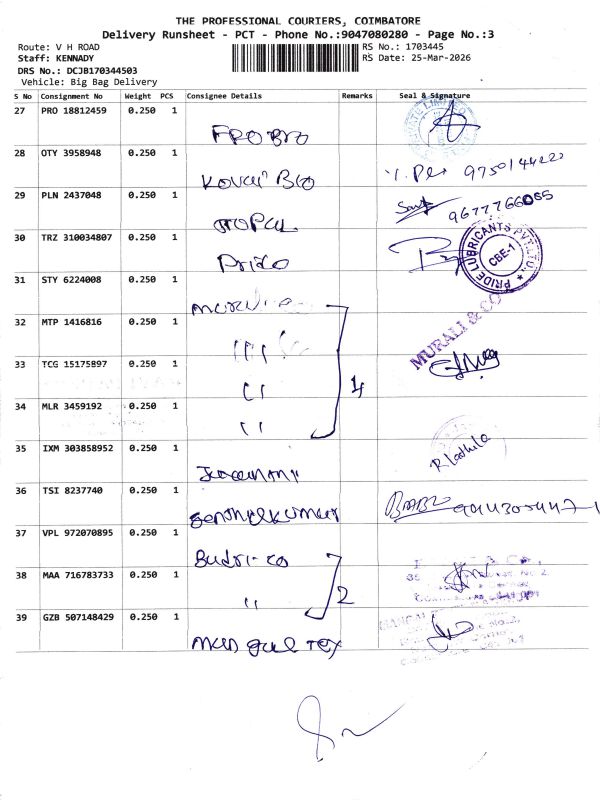 THE PROFESSIONAL COURIERS, COIMBATORE
Delivery Runsheet - PCT - Phone No.:9047080280 - Page No.:3
Route: V H ROAD
RS No.: 1703445
Staff: KENNADY
RS Date: 25-Mar-2026
DRS No.: DCJB170344503
Vehicle: Big Bag Delivery
S No Consignment No Weight PCS Consignee Details Remarks Seal & Signature
27 PRO 18812459 0.250 1
FROBIO
28 OTY 3958948 0.250 1
Kovai Bio
29 PLN 2437048 0.250 1
9677766085
30 TRZ 310034807 0.250 1
Prido
PRIDE LUBRICANTS PVT.LTD.
CBE-1
31 STY 6224008 0.250 1
32 MTP 1416816 0.250 1
MURALI & CO
33 TCG 15175897 0.250 1
34 MLR 3459192 0.250 1
4
35 IXM 303858952 0.250 1
R Lathika
36 TSI 8237740 0.250 1
Senthilkumar
37 VPL 972070895 0.250 1
38 MAA 716783733 0.250 1
2
39 GZB 507148429 0.250 1